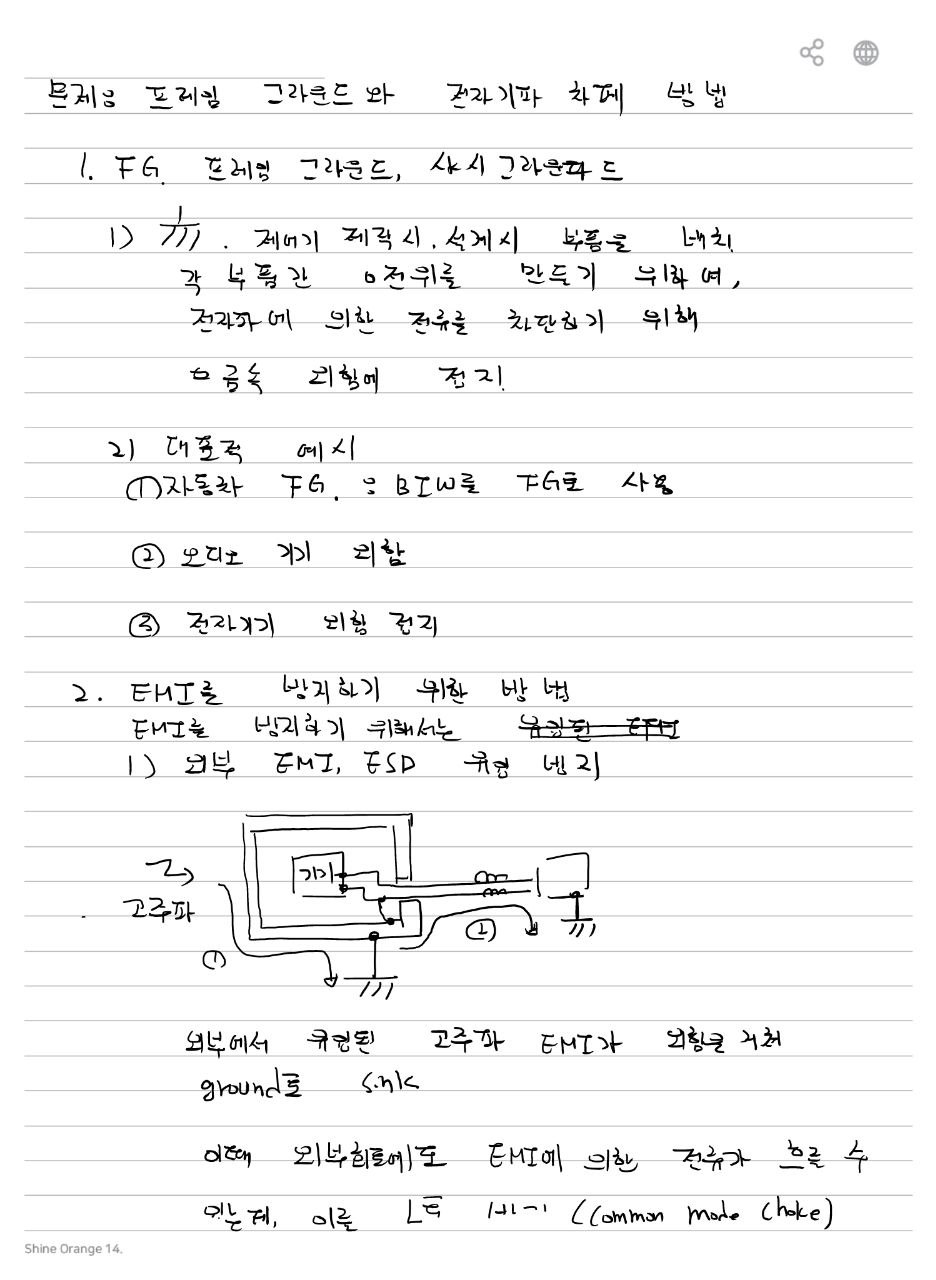 문제 : 프레임 그라운드와 전자기파 차폐 방법
1. FG. 프레임 그라운드, 샤시 그라운드
1) . 제어기 제작시, 설계시 부품을 배치
각 부품간 0전위를 만들기 위하여,
전자파에 의한 전류를 차단하기 위해
금속 외함에 접지.
2) 대표적 예시
① 자동차 FG. : BIW를 FG로 사용
② 오디오 기기 외함
③ 전자기기 외함 접지
2. EMI를 방지하기 위한 방법
EMI를 방지하기 위해서는
1) 외부 EMI, ESD 유입 방지
기기
고주파
①
②
외부에서 유입된 고주파 EMI가 외함을 거쳐
ground로 sink
이때 외부회로에도 EMI에 의한 전류가 흐를 수
있는데, 이를 L로 (Common mode choke)
Shine Orange 14.